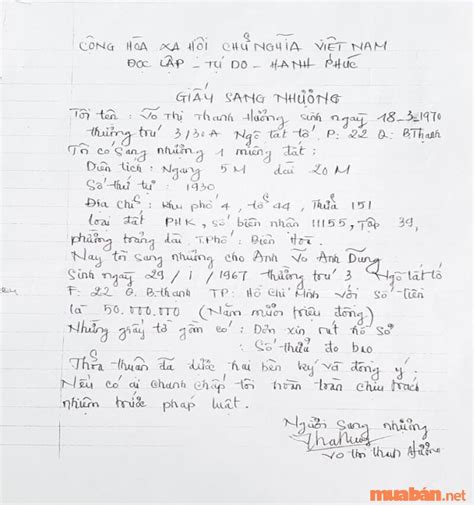 CÔNG HÒA XA HÔI CHỦ NGHĨA VIỆT NAM
ĐỌC LẬP - TỰ DO - HẠNH PHÚC
GIẤY SANG NHƯỢNG
Tôi tên : Võ Thị Thanh Hương sinh ngày 18-3-1970
thường trú 3/30A Ngô tất tố. P: 22 Q: B.Thạnh
Tôi có sang nhường 1 miếng đất :
Diện tích : Ngang 5M dài 20M
Số thứ tự : 1930
Địa chỉ : khu phố 4, tổ 44, Thửa 151
loại đất PHK, số biên nhân 11155, Tập 39,
phường trảng dài, T.Phố : Biên Hòa.
Nay tôi sang nhường cho Anh Võ Anh Dũng
Sinh ngày 29/1/1967 thường trú 3 Ngô tất tố
F: 22 Q. B.thạnh TP: Hồ Chí Minh với số tiền
là 50.000.000 (Năm mươi triệu đồng)
Những giấy tờ gồm có : Đơn xin rút hồ sơ
: Số thửa đo bao
Thỏa thuân đã được hai bên ký và đồng ý,
Nếu có ai chanh chấp tôi hoàn toàn chịu trách
nhiệm trước pháp luật.
Người sang nhường
Võ thị thanh Hương
muabán.net